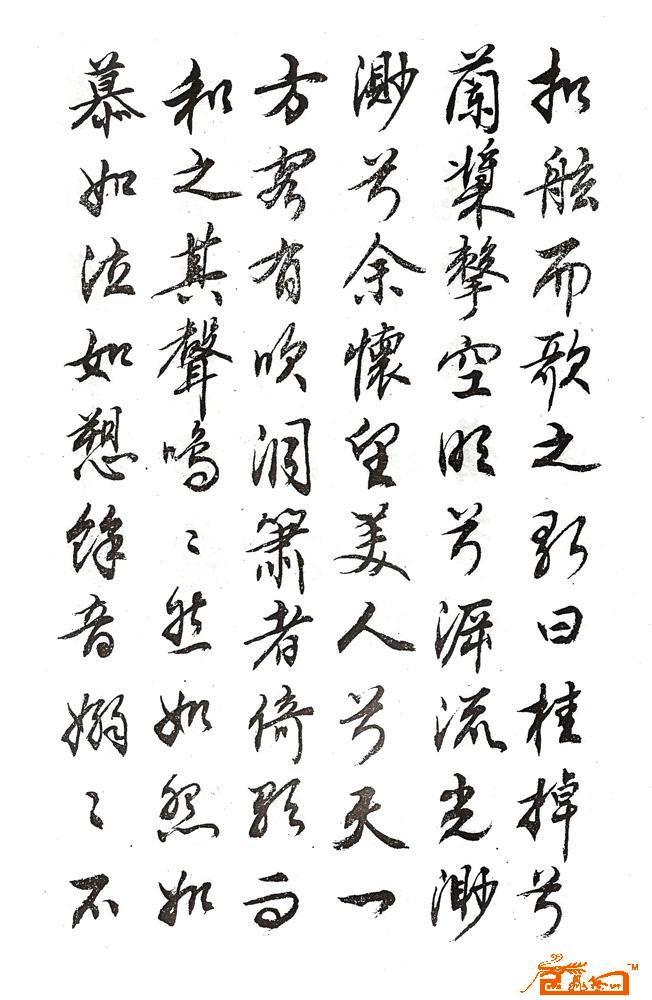 扣舷而歌之歌曰桂棹兮
蘭槳擊空明兮泝流光渺
渺兮余懷望美人兮天一
方客有吹洞簫者倚歌而
和之其聲嗚〻然如怨如
慕如泣如愬餘音嫋〻不